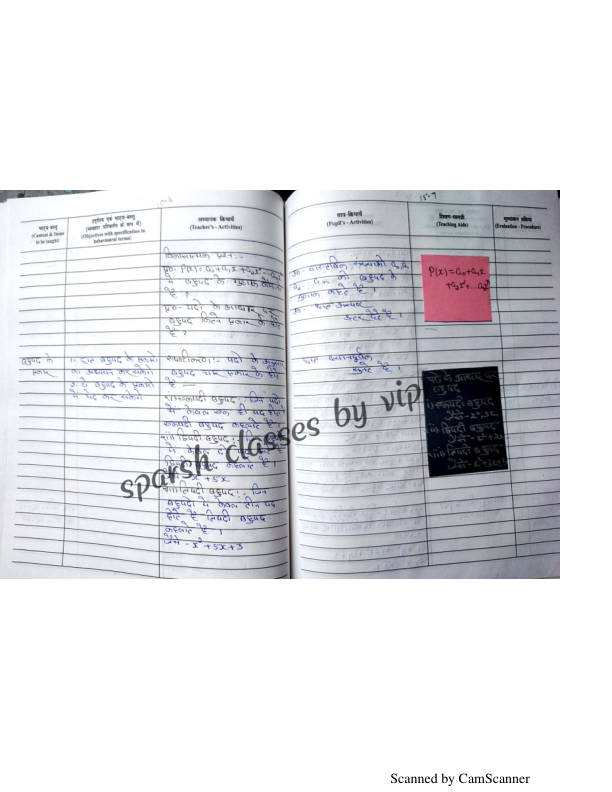 पाठ्य-वस्तु
(Content & Items
to be taught)
उद्देश्य एवं पाठ्य-वस्तु
(व्यवहार परिवर्तन के रूप में)
(Objectives with specification in
behavioural terms)
अध्यापक क्रियायें
(Teacher's - Activities)
विकासात्मक प्रश्न :-
प्र०- P(x) = a₀+a₁x+a₂x²...
में बहुपद के गुणांक
है ?
प्र०- पदों के आधार पर
बहुपद कितने प्रकार के होते
है ?
बहुपद के
प्रकार
1. छात्र बहुपद के प्रकारो
का अध्ययन कर सकेगे
2. वे बहुपद के प्रकारो
में भेद कर सकेगे
स्पष्टीकरण :- पदों के अनुसार
बहुपद प्रकार के होते
है —
एकपदी बहुपद :- जिन पदो
में केवल एक ही पद होता
एकपदी बहुपद कहलाते है ।
(ii) द्विपदी बहुपद :-
में केवल दो पद
द्विपदी बहुपद कहलाते है ।
x² + 5x
(iii) त्रिपदी बहुपद :- जिन
बहुपदो में केवल तीन पद
होते है त्रिपदी बहुपद
कहलाते है ।
जैसे - x² + 5x + 3
15-7
छात्र-क्रियायें
(Pupil's - Activities)
शिक्षण-सामग्री
(Teaching Aids)
मूल्यांकन प्रक्रिया
(Evaluation - Procedure)
उ०- वास्तविक संख्याओं a₀, a₁
a₂ ... aₙ को बहुपद के
गुणांक कहते है ।
उ०- छात्र
उत्तर देते है ।
छात्र ध्यानपूर्वक
सुनते है ।
P(x) = a₀+a₁x
+a₂x²+...
पदों के आधार पर
बहुपद
i) एकपदी बहुपद
ii) द्विपदी बहुपद
sparsh classes by vip
Scanned by CamScanner